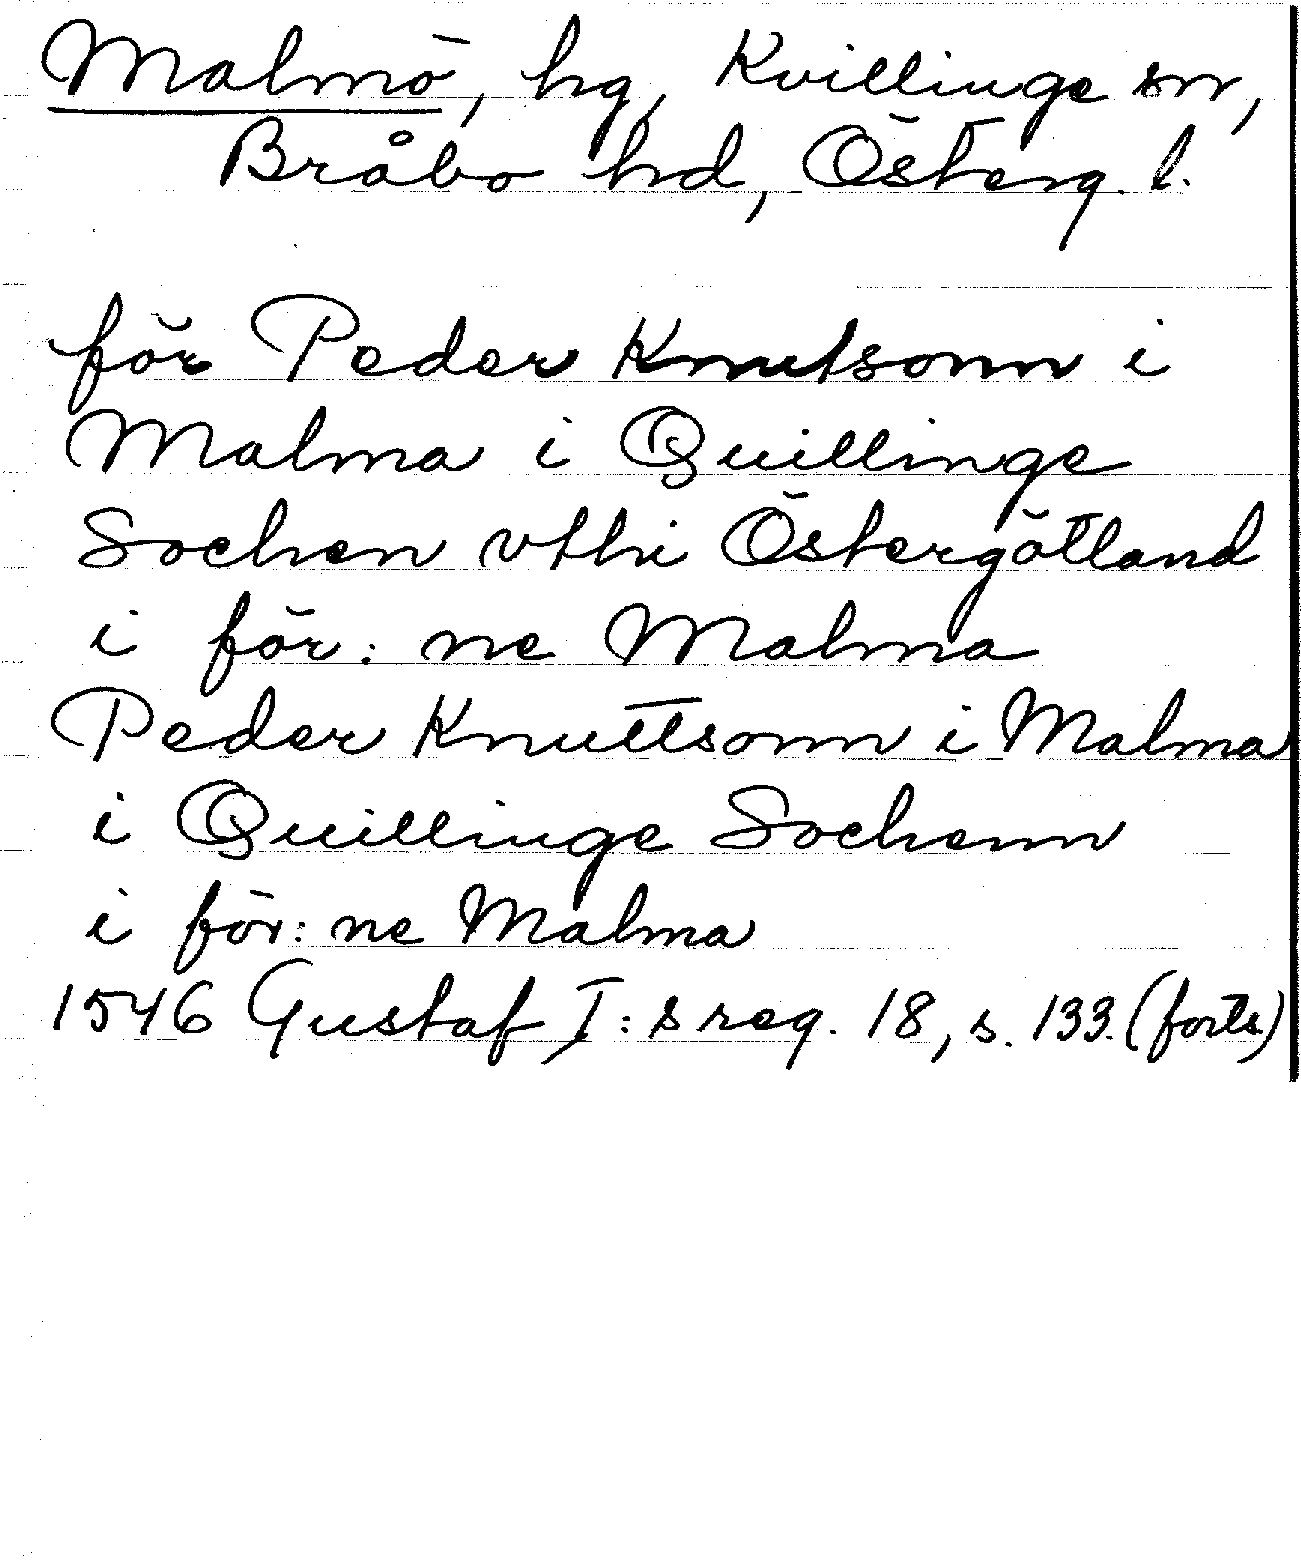 Malmö, hg, Kvillinge sn,
Bråbo hd, Österg. l.
för Peder Knutsonn i
Malma i Quillinge
Sochen vthi Östergötland
i för: ne Malma
Peder Knuttsonn i Malma
i Quillinge Sochenn
i för: ne Malma
1546 Gustaf I: s reg. 18, s. 133. (forts)